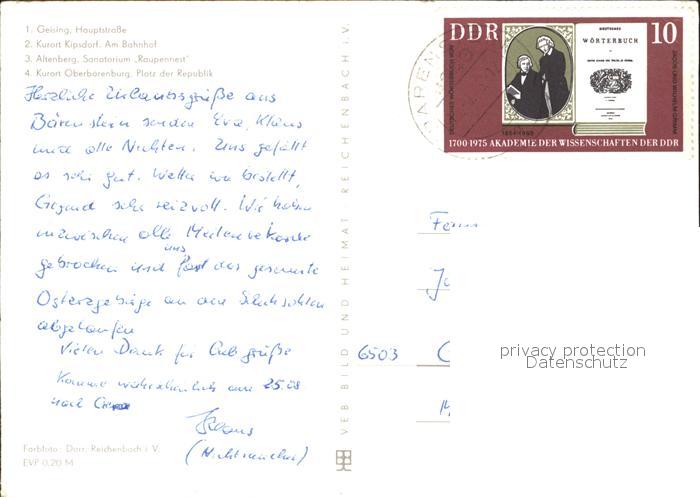 1. Geising, Hauptstraße
2. Kurort Kipsdorf. Am Bahnhof
3. Altenberg, Sanatorium „Raupennest"
4. Kurort Oberbärenburg, Platz der Republik
Herzliche Urlaubsgrüße aus
Bärenstein senden Eva, Klaus
und alle Nichten. Uns gefällt
es sehr gut. Wetter wie bestellt,
Gegend sehr reizvoll. Wir haben
inzwischen alle
gebrochen und uns fast das gesamte
Osterzgebirge an den Schuhsohlen
abgelaufen
Vielen Dank für Cub grüße
Komme wahrscheinlich am 25.08
nach
Klaus
(Nichtraucher)
Farbfoto: Darr, Reichenbach i. V.
EVP 0,20 M
VEB BILD UND HEIMAT · REICHENBACH i. V.
BÄRENS
DDR
10
DEUTSCHES
WÖRTERBUCH
DEUTSCHES WÖRTERBUCH VON
JACOB UND WILHELM GRIMM
1854-1960
1700-1975 AKADEMIE DER WISSENSCHAFTEN DER DDR
Fam
6503
privacy protection
Datenschutz